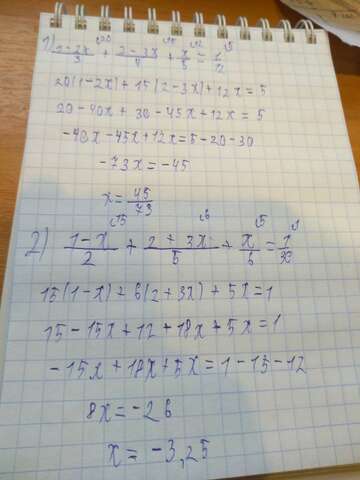 1) (1-2x)/3 \20 + (2-3x)/4 \15 + x/5 \12 = 1/12 \5
20(1-2x)+15(2-3x)+12x=5
20-40x+30-45x+12x=5
-40x-45x+12x=5-20-30
-73x=-45
x=45/73
2) (1-x)/2 \15 + (2+3x)/5 \6 + x/6 \5 = 1/30 \1
15(1-x)+6(2+3x)+5x=1
15-15x+12+18x+5x=1
-15x+18x+5x=1-15-12
8x=-26
x=-3,25